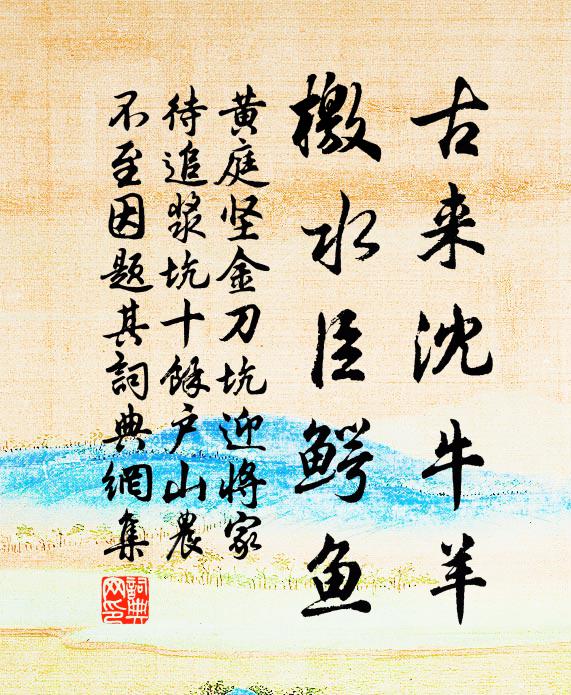 古来沈牛羊
檄水臣鳄鱼
黄庭坚金刀坑迎将家
待追浆坑十馀户山农
不至因题其詞典網集
詞典
网印